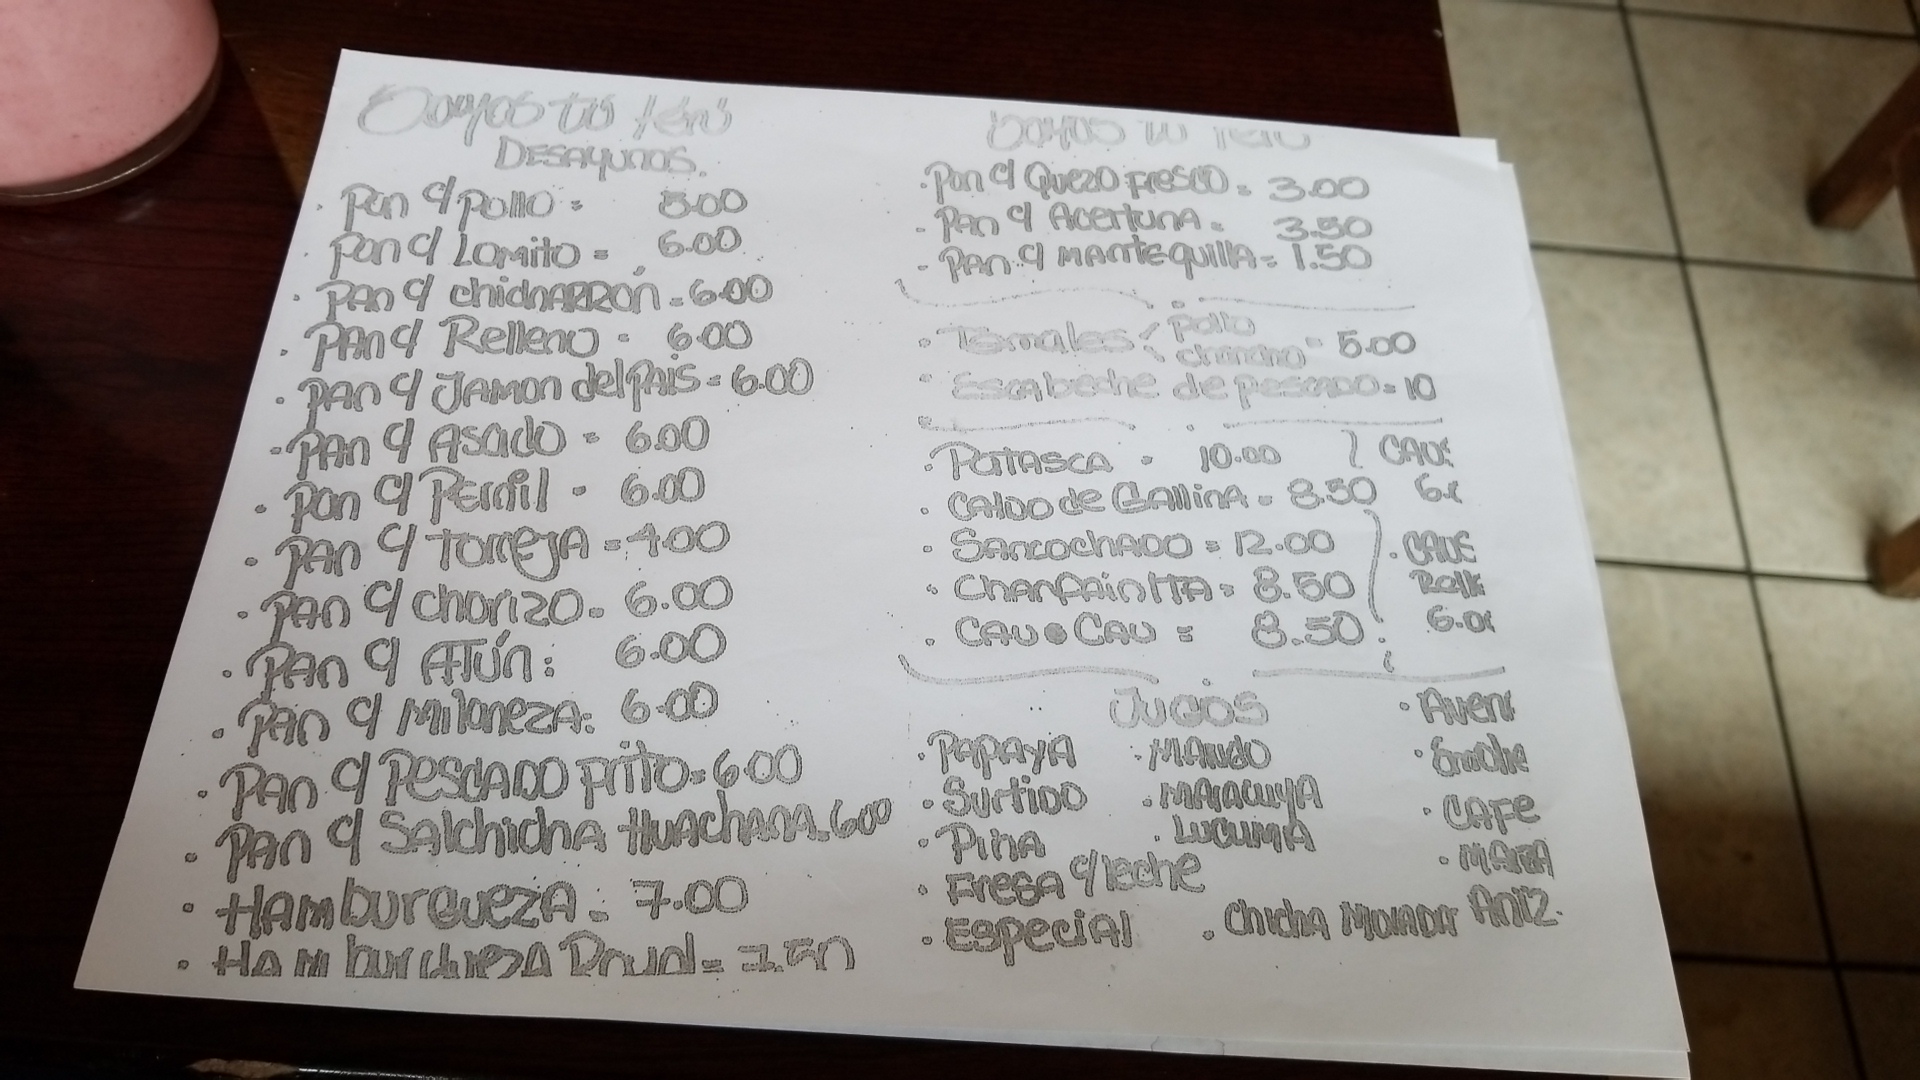 DESAYUNOS.
. Pan c/ Pollo = 5.00
. Pan c/ Lomito = 6.00
. PAN c/ chicharrón = 6.00
. PAN c/ Relleno = 6.00
. PAN c/ JAMON del PAIS = 6.00
. PAN c/ Asado = 6.00
. Pan c/ Pernil = 6.00
. PAN c/ torreja = 4.00
. PAN c/ chorizo = 6.00
. PAN c/ ATÚN: 6.00
. PAN c/ MilanezA: 6.00
. PAN c/ PescADO FRITO = 6.00
. PAN c/ SAlchichA HUAchANA = 6.00
. HAmburguezA = 7.00
. HAmburguezA
. Pan c/ Quezo Fresco = 3.00
. PAN c/ Acertuna = 3.50
. PAN c/ MANTEQUILLA = 1.50
. Tamales pollo
chancho = 5.00
. Escabeche de pescado = 10
. PATASCA = 10.00
. CAlDO de GAllinA = 8.50
. SANCOchADO = 12.00
. ChanfainITA = 8.50
. CAU CAU = 8.50
JUGOS
. PAPAYA . MANGO
. Surtido . MARACUYA
. PIÑA . LUCUMA
. FresA c/leche
. EspeciAl
. CAFE
. Chicha MORADA ANIZ.